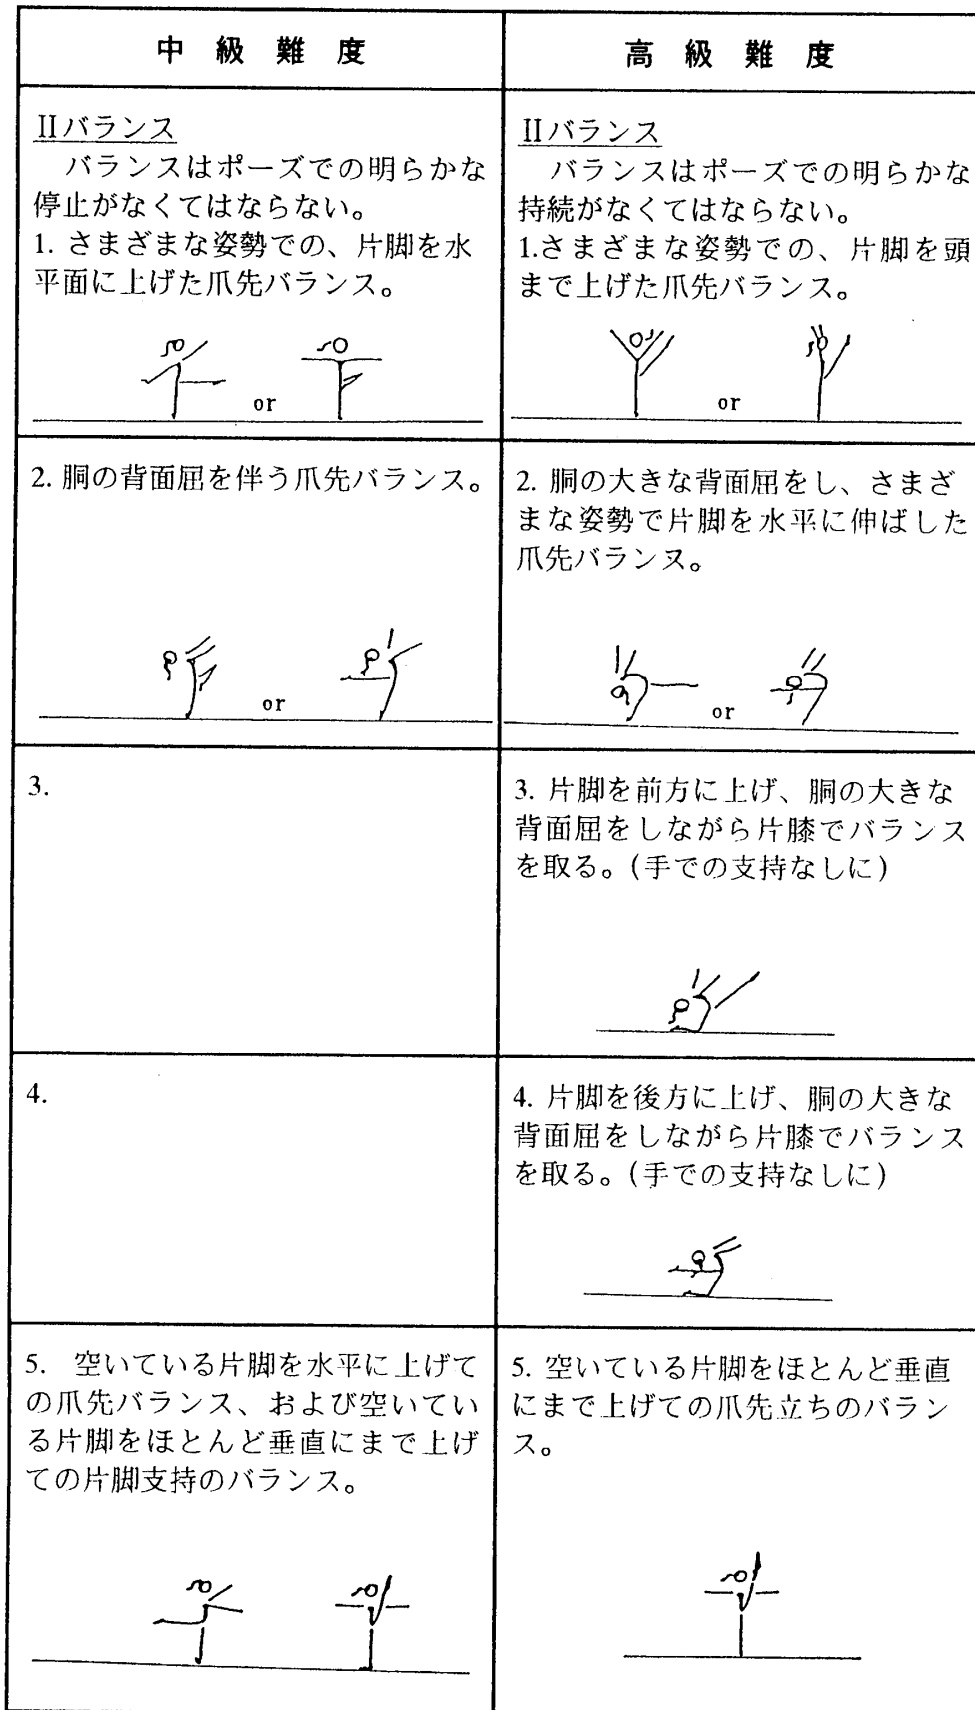 中級難度
高級難度
IIバランス
バランスはポーズでの明らかな
停止がなくてはならない。
1. さまざまな姿勢での、片脚を水
平面に上げた爪先バランス。
or
IIバランス
バランスはポーズでの明らかな
持続がなくてはならない。
1.さまざまな姿勢での、片脚を頭
まで上げた爪先バランス。
or
2. 胴の背面屈を伴う爪先バランス。
or
2. 胴の大きな背面屈をし、さまざ
まな姿勢で片脚を水平に伸ばした
爪先バランス。
or
3.
3. 片脚を前方に上げ、胴の大きな
背面屈をしながら片膝でバランス
を取る。(手での支持なしに)
4.
4. 片脚を後方に上げ、胴の大きな
背面屈をしながら片膝でバランス
を取る。(手での支持なしに)
5. 空いている片脚を水平に上げて
の爪先バランス、および空いてい
る片脚をほとんど垂直にまで上げ
ての片脚支持のバランス。
5. 空いている片脚をほとんど垂直
にまで上げての爪先立ちのバラン
ス。